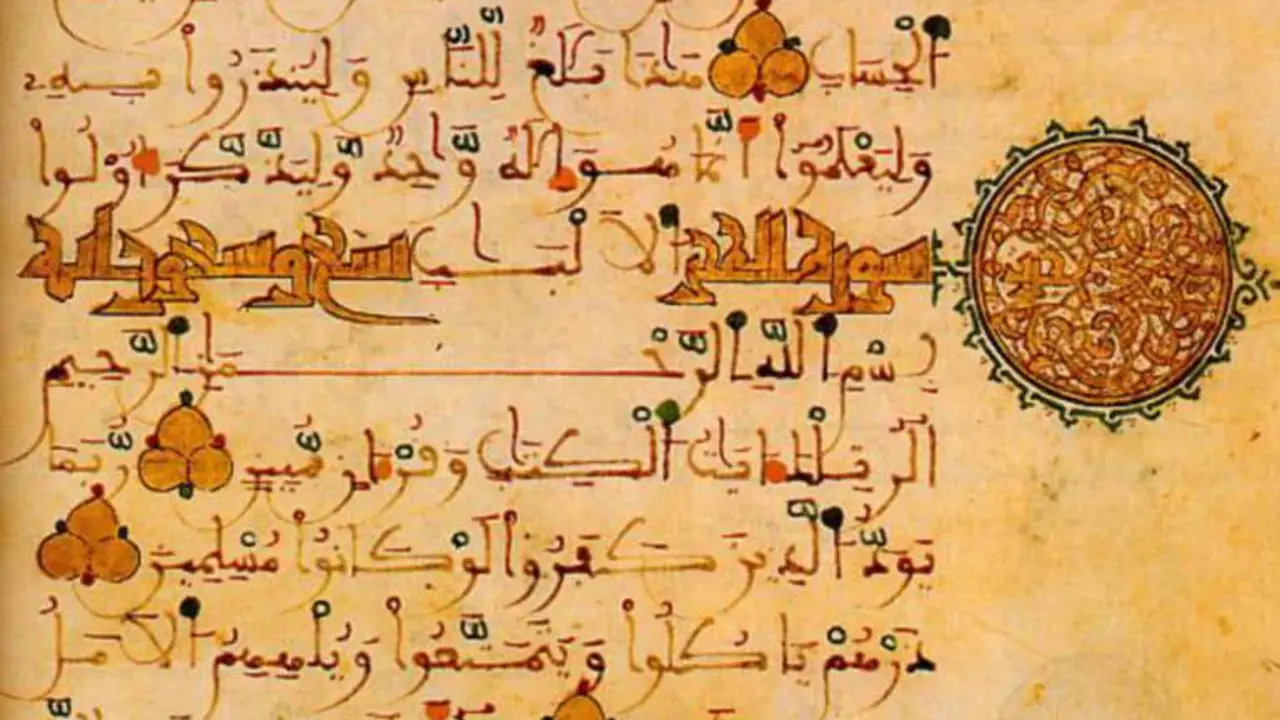 الْحِسَابِ هَٰذَا بَلَٰغٌ لِّلنَّاسِ وَلِيُنذَرُواْ بِهِ
وَلِيَعْلَمُواْ أَنَّمَا هُوَ إِلَٰهٌ وَّٰحِدٌ وَّلِيَذَّكَّرَ أُوْلُواْ
سورة الحجر الَالْبَٰبِ تسع وتسعون اية
بِسْمِ اللَّهِ الرَّحْمَٰنِ الرَّحِيمِ
الَر تِلْكَ ءَايَٰتُ الْكِتَٰبِ وَقُرْءَانٍ مُّبِينٍ رُّبَمَا
يَوَدُّ الَّذِينَ كَفَرُواْ لَوْ كَانُواْ مُسْلِمِينَ
ذَرْهُمْ يَاكُلُواْ وَيَتَمَتَّعُواْ وَيُلْهِهِمُ الَامَلُ